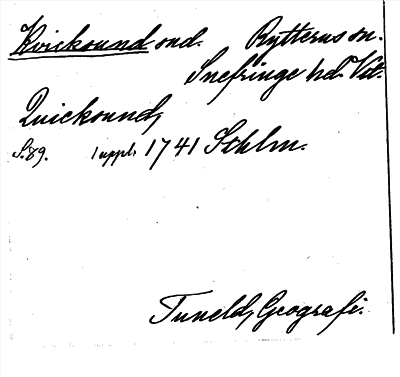 Kvicksund ond. Rytterns sn.
Snefringe hd. Vstl.
Quicksund,
S. 89. 1 uppl. 1741 Sthlm.
Tuneld, Geografi.